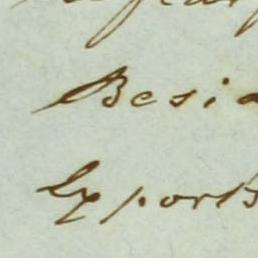 Besid
Exports